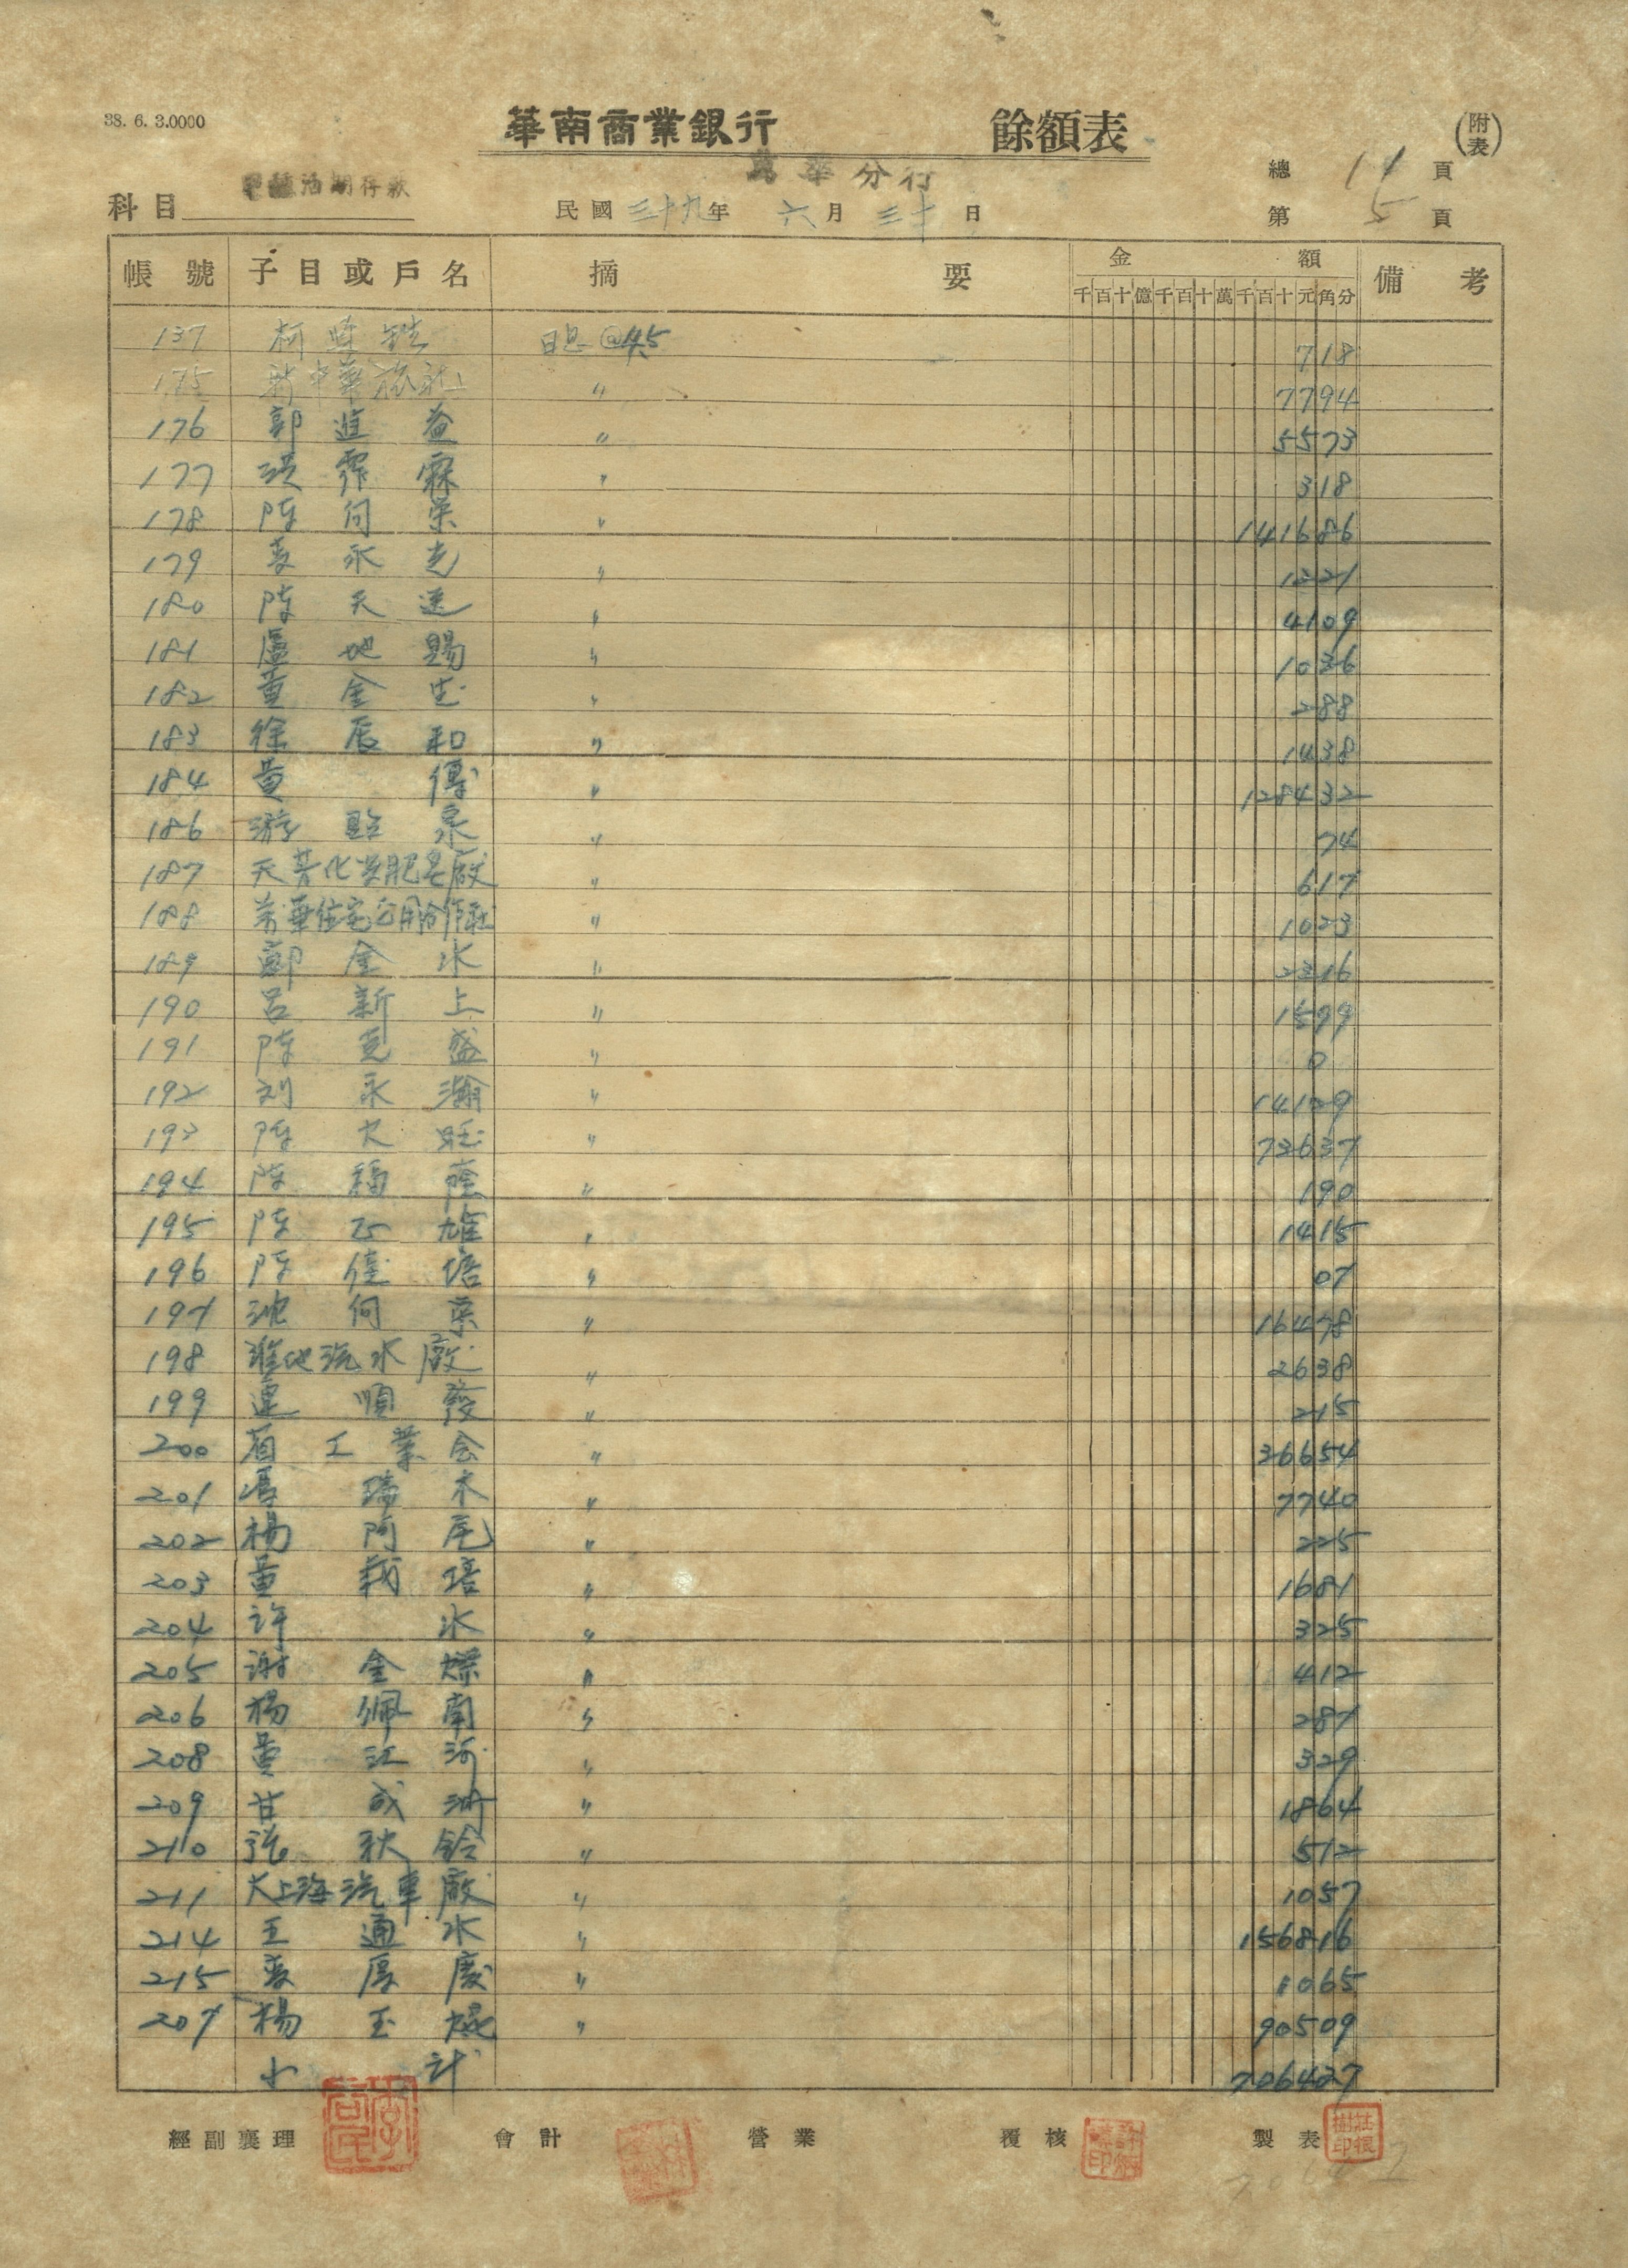 38. 6. 3.0000
華南商業銀行 餘額表 (附表)
萬華分行
總 11 頁
科目 甲種活期存款
民國 三十九年 六月 三十日
第 5 頁
帳號 子目或戶名 摘要 金額 備考
千百十億千百十萬千百十元角分
137 柯 日息@4.5 718
175 新中華旅社 〃 7794
176 郭進益 〃 5573
177 洪霖 〃 318
178 陳何榮 〃 141686
179 麥永 〃 1221
180 陳天送 〃 4109
181 盧地賜 〃 1036
182 黃金 〃 288
183 徐辰和 〃 1438
184 黃傳 〃 128432
186 游泉 〃 74
187 天芳化業肥皂廠 〃 617
188 萬華住宅公用合作社 〃 1023
189 鄭金水 〃 2316
190 呂新上 〃 1599
191 陳克盛 〃 0
192 刘永瀚 〃 14129
193 陳火旺 〃 73637
194 陳福蔭 〃 190
195 陳雄 〃 1415
196 陳培 〃 07
197 沈何 〃 16478
198 汽水廠 〃 2638
199 連順發 〃 215
200 省工業会 〃 36654
201 馮瑞木 〃 7740
202 楊阿尾 〃 225
203 黃栽培 〃 1681
204 許水 〃 325
205 謝金 〃 412
206 楊佩南 〃 287
208 黃江河 〃 329
209 甘成 〃 1864
210 張秋鈴 〃 512
211 大上海汽車廠 〃 1057
214 王通水 〃 156816
215 麥厚慶 〃 1065
207 楊玉焜 〃 90509
小計 706427
經副襄理 會計 營業 覆核 製表